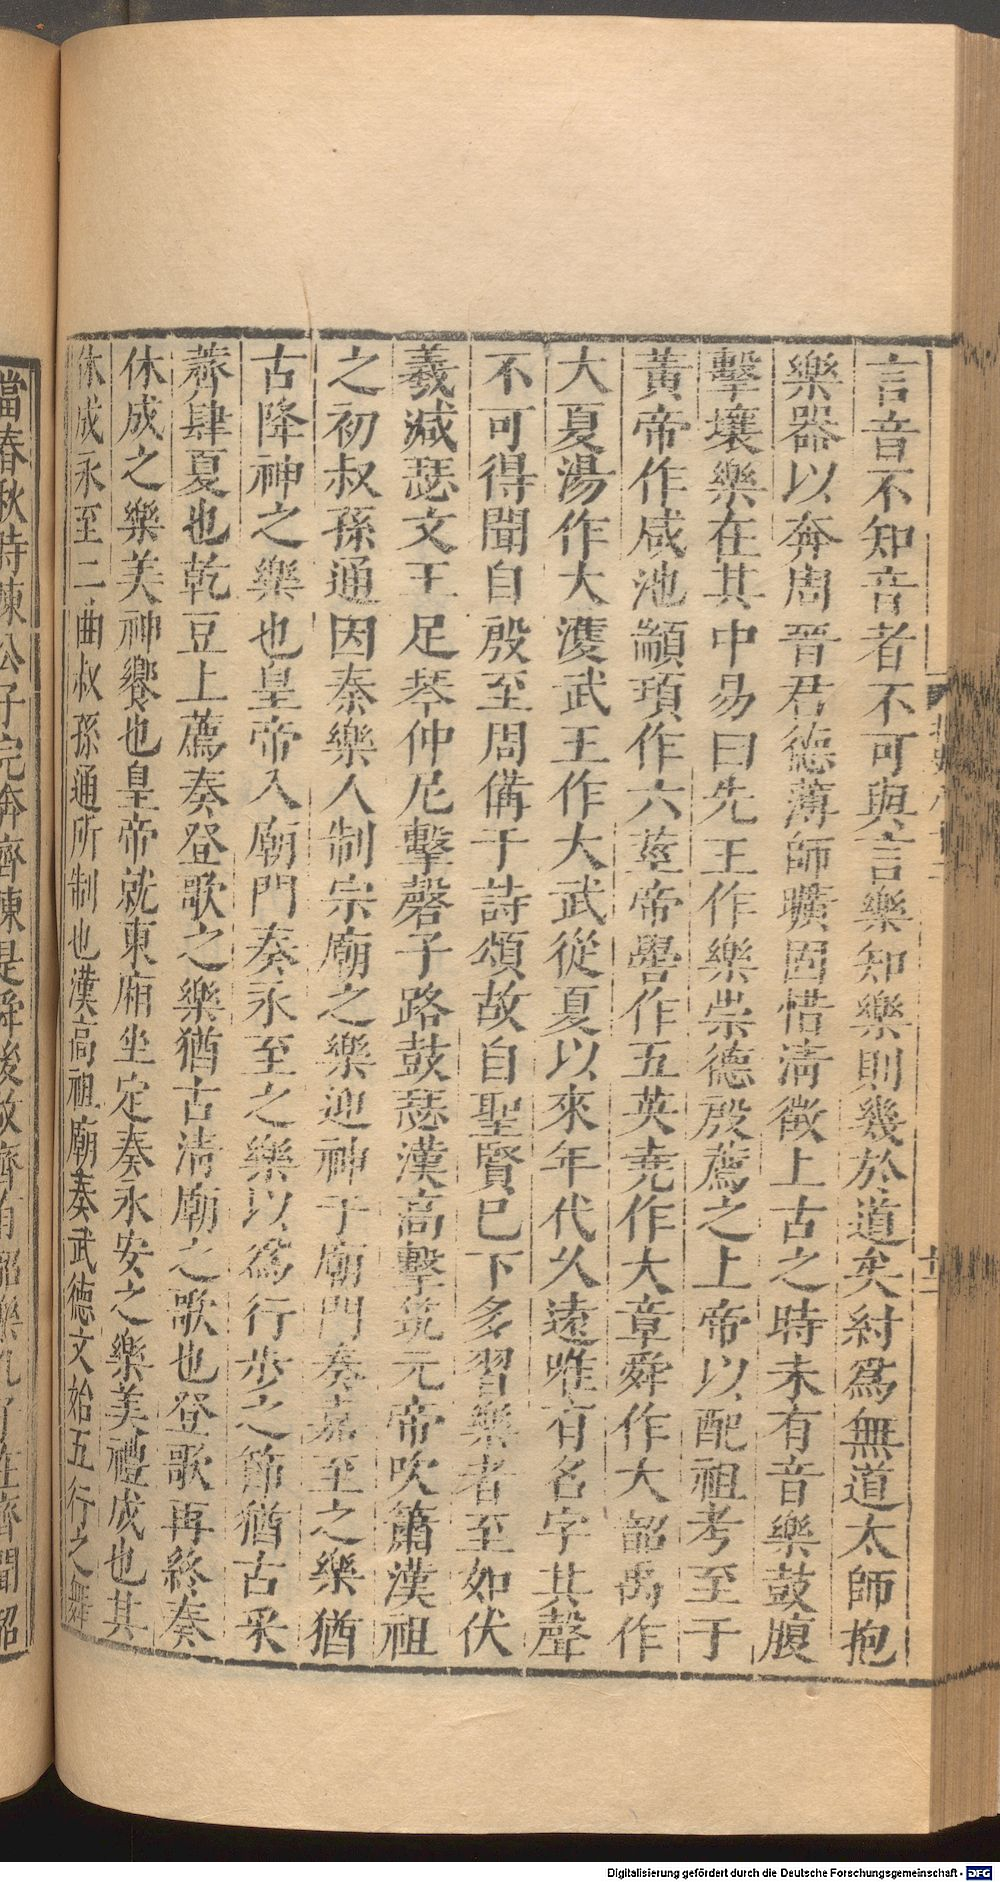 言音不知音者不可與言樂知樂則幾於道矣紂爲無道太師抱
樂器以奔周晉君德薄師曠固惜清徵上古之時未有音樂鼓腹
擊壤樂在其中易曰先王作樂崇德殷薦之上帝以配祖考至于
黃帝作咸池顓頊作六莖帝嚳作五英堯作大章舜作大韶禹作
大夏湯作大濩武王作大武從夏以來年代久遠唯有名字其聲
不可得聞自殷至周備于詩頌故自聖賢巳下多習樂者至如伏
羲減瑟文王足琴仲尼擊磬子路鼓瑟漢高擊筑元帝吹簫漢祖
之初叔孫通因秦樂人制宗廟之樂迎神于廟門奏嘉至之樂猶
古降神之樂也皇帝入廟門奏永至之樂以爲行步之節猶古采
薺肆夏也乾豆上薦奏登歌之樂猶古清廟之歌也登歌再終奏
休成之樂美神饗也皇帝就東廂坐定奏永安之樂美禮成也其
休成永至二曲叔孫通所制也漢高祖廟奏武德文始五行之舞
當春秋時陳公子完奔齊陳是舜後故齊有韶樂孔子在齊聞韶
十二
Digitalisierung gefördert durch die Deutsche Forschungsgemeinschaft - DFG